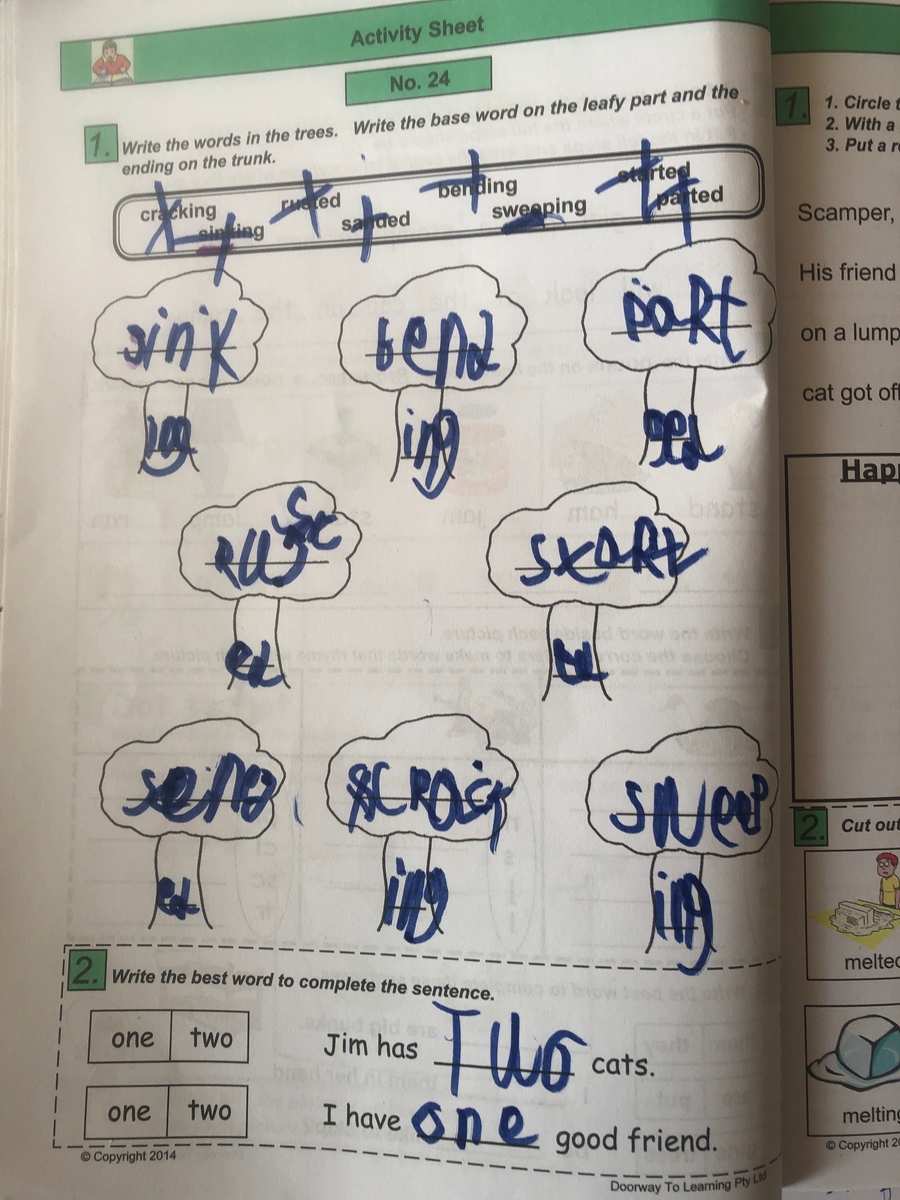 Activity Sheet
No. 24
1. Write the words in the trees. Write the base word on the leafy part and the
ending on the trunk.
cracking rusted bending started
sinking sanded sweeping parted
sink bend paRt
ing ing ed
Rust staRt
ed ed
ed ing ing
sweep
2. Write the best word to complete the sentence.
one two Jim has Two cats.
one two I have one good friend.
© Copyright 2014
Doorway To Learning Pty Ltd
1. 1. Circle
2. With a
3. Put a
Scamper,
His friend
on a lump
cat got off
2. Cut out
melted
melting
© Copyright